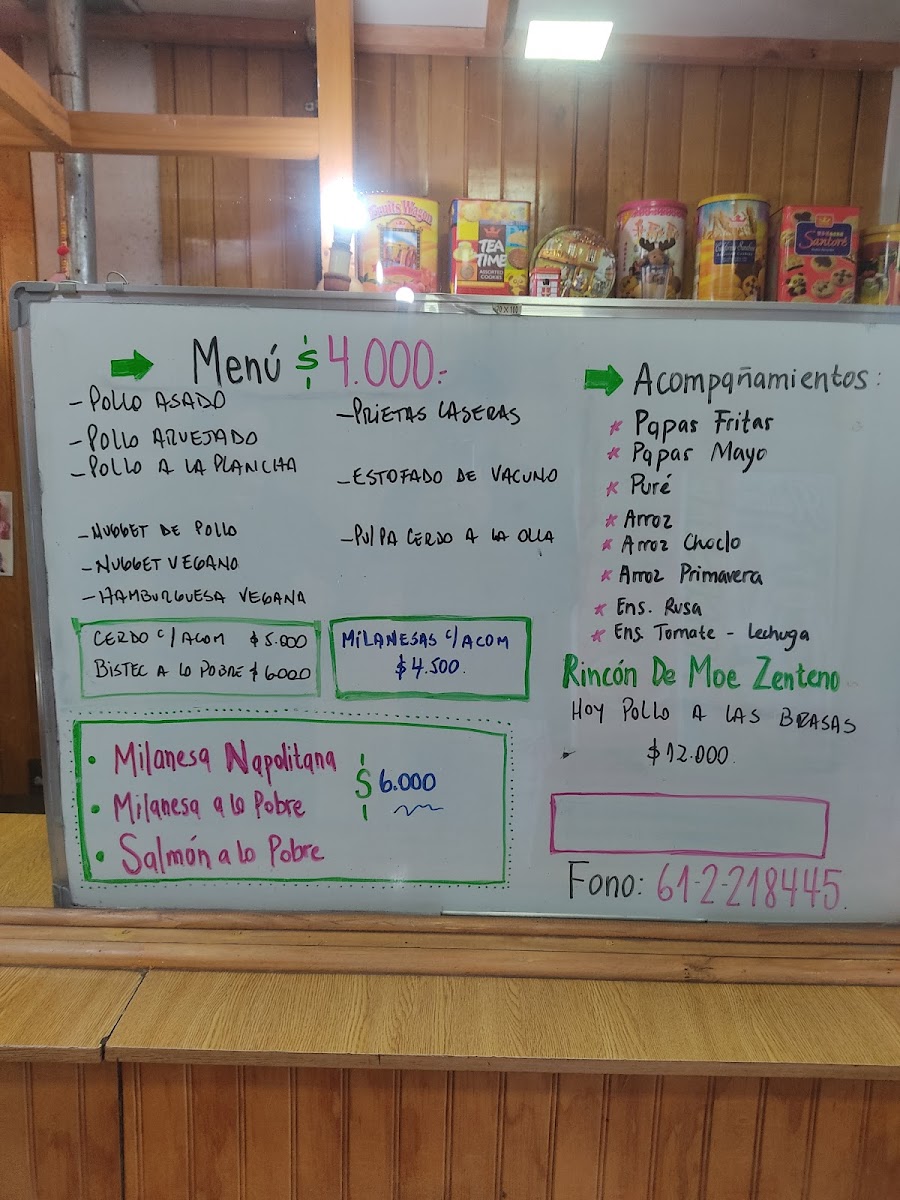 Fruits Wagon
TEA
TIME
ASSORTED
COOKIES
Santoré
70 X 100
Menú $ 4.000.-
- POLLO ASADO
- POLLO ARVEJADO
- POLLO A LA PLANCHA
- NUGGET DE POLLO
- NUGGET VEGANO
- HAMBURGUESA VEGANA
- PRIETAS CASERAS
- ESTOFADO DE VACUNO
- PULPA CERDO A LA OLLA
CERDO C/ACOM $ 5.000
BISTEC A LO POBRE $ 6000
MILANESAS C/ACOM
$ 4.500.
• Milanesa Napolitana
• Milanesa a lo Pobre
• Salmón a lo Pobre
$ 6.000
Acompañamientos:
* Papas Fritas
* Papas Mayo
* Puré
* Arroz
* Arroz Choclo
* Arroz Primavera
* Ens. Rusa
* Ens. Tomate - Lechuga
Rincón De Moe Zenteno
HOY POLLO A LAS BRASAS
$ 12.000.
Fono: 61-2-218445.